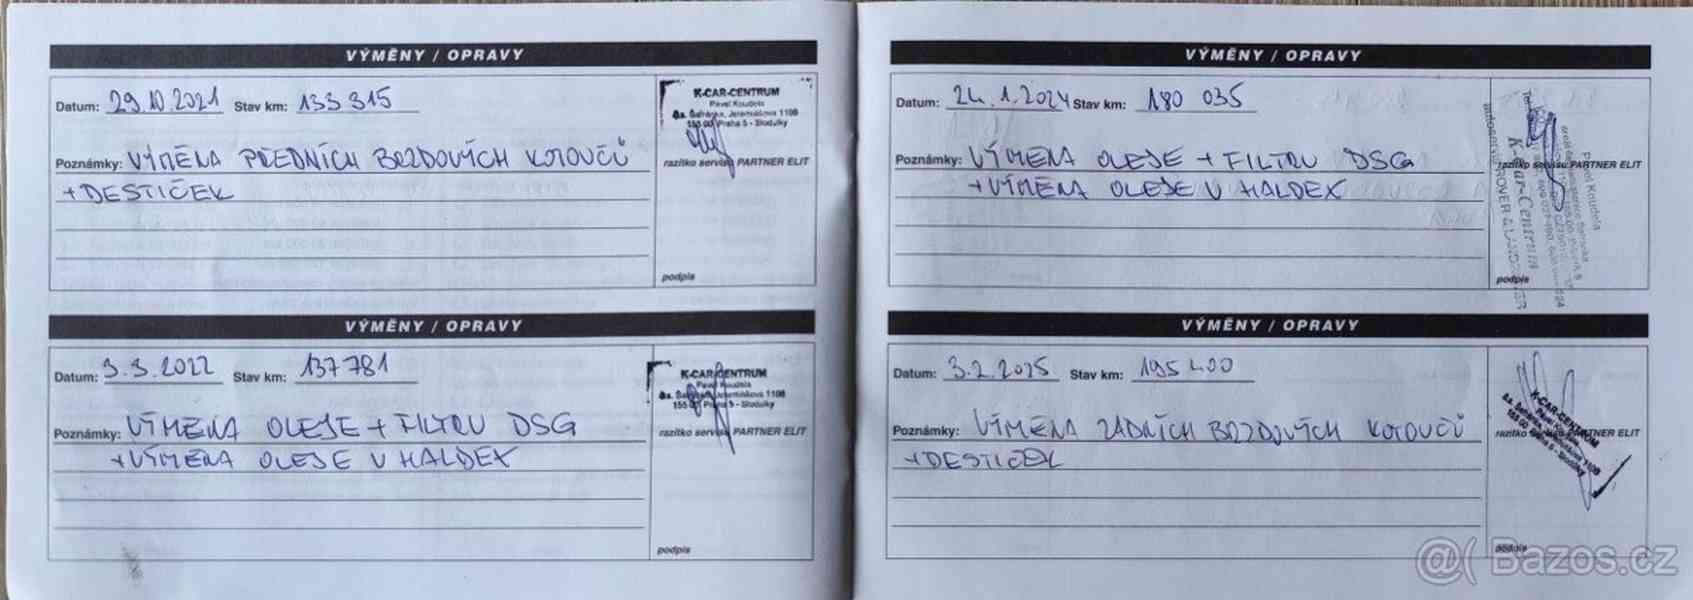 VÝMĚNY / OPRAVY
Datum: 29.10.2021 Stav km: 133 315
Poznámky: VÝMĚNA PŘEDNÍCH BRZDOVÝCH KOTOUČŮ
+ DESTIČEK
K-CAR-CENTRUM
Pavel Koudela
8a. Šafránka, Jeremiášova 1108
155 00 Praha 5 - Stodůlky
razítko servisu PARTNER ELIT
podpis
VÝMĚNY / OPRAVY
Datum: 3.3.2022 Stav km: 137 781
Poznámky: VÝMĚNA OLEJE + FILTRU DSG
+ VÝMĚNA OLEJE V HALDEX
K-CAR-CENTRUM
Pavel Koudela
Jeremiášova 1108
155 00 Praha 5 - Stodůlky
razítko servisu PARTNER ELIT
podpis
VÝMĚNY / OPRAVY
Datum: 24.1.2024 Stav km: 180 035
Poznámky: VÝMĚNA OLEJE + FILTRU DSG
+ VÝMĚNA OLEJE V HALDEX
razítko servisu PARTNER ELIT
Pavel Koudela
K-Car-Centrum
podpis
VÝMĚNY / OPRAVY
Datum: 3.2.2025 Stav km: 195 400
Poznámky: VÝMĚNA ZADNÍCH BRZDOVÝCH KOTOUČŮ
+ DESTIČEK
K-CAR-CENTRUM
155 00 Praha 5 - Stodůlky
razítko PARTNER ELIT
podpis
@( Bazos.cz